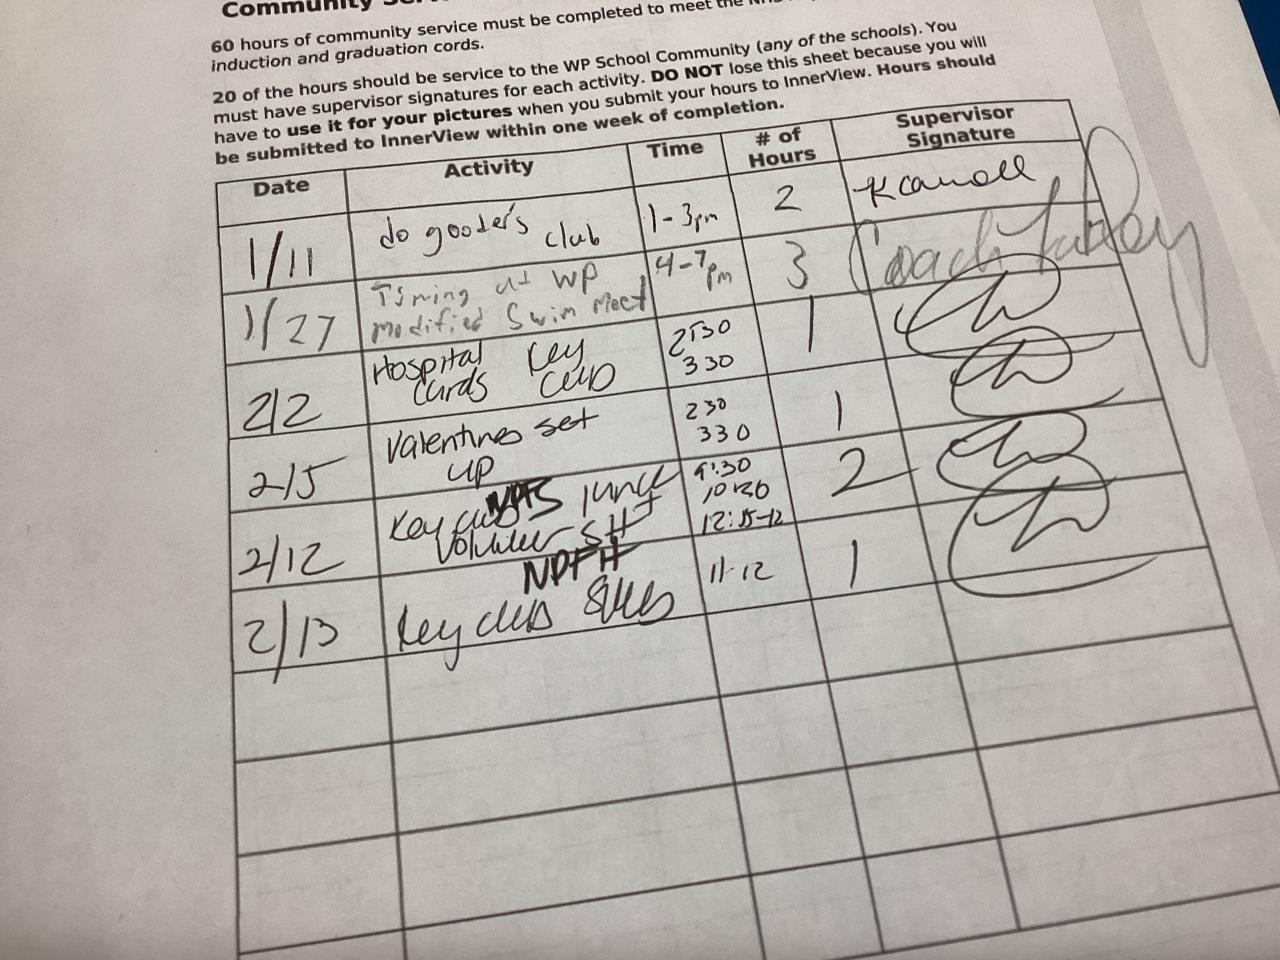 Community
60 hours of community service must be completed to meet the
induction and graduation cords.
20 of the hours should be service to the WP School Community (any of the schools). You
must have supervisor signatures for each activity. DO NOT lose this sheet because you will
have to use it for your pictures when you submit your hours to InnerView. Hours should
be submitted to InnerView within one week of completion.
Date Activity Time # of Hours Supervisor Signature
1/11 do gooder's club 1-3pm 2 K Carroll
1/27 Timing at WP modified Swim Meet 4-7pm 3 Coach
2/2 Hospital Cards Key Club 2:30 330 1
2/5 Valentines set up 230 330 1
2/12 Key club lunch Volunteer 9:30 10:30 2
2/13 NDFH Key club 11-12 1